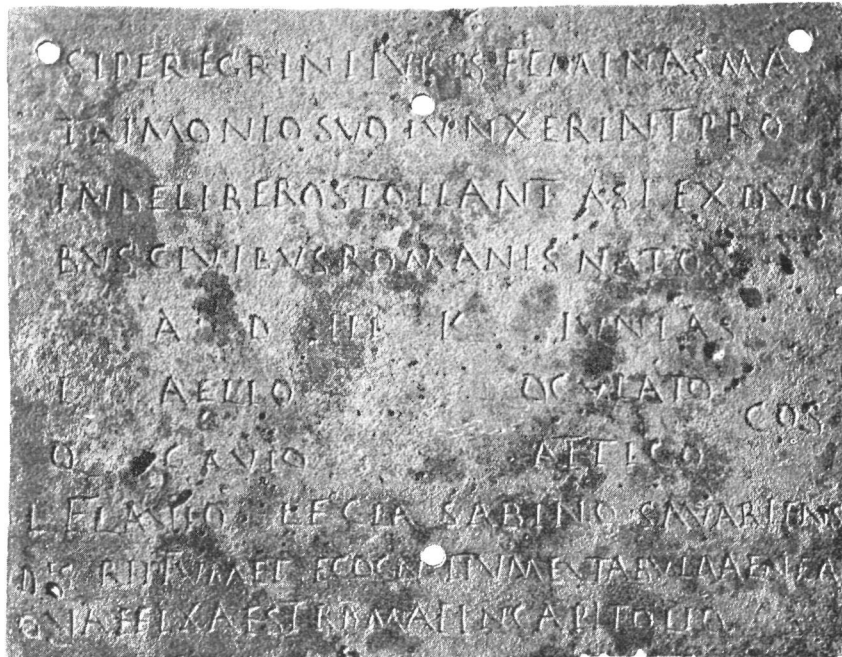 SI PEREGRINI IVRIS FEMINAS MA
TRIMONIO SVO IVNXERINT PRO
INDE LIBEROS TOLLANT ASI EX DVO
BVS CIVIBVS ROMANIS NATO
A D III K IVNIAS
L AELIO OCVLATO
COS
Q GAVIO ATTICO
L FLAVIO L F CLA SABINO SAVARIENS
DESCRIPTVM ET RECOGNITVM EX TABVLA AENEA
QVAE FIXA EST ROMAE IN CAPITOLIO